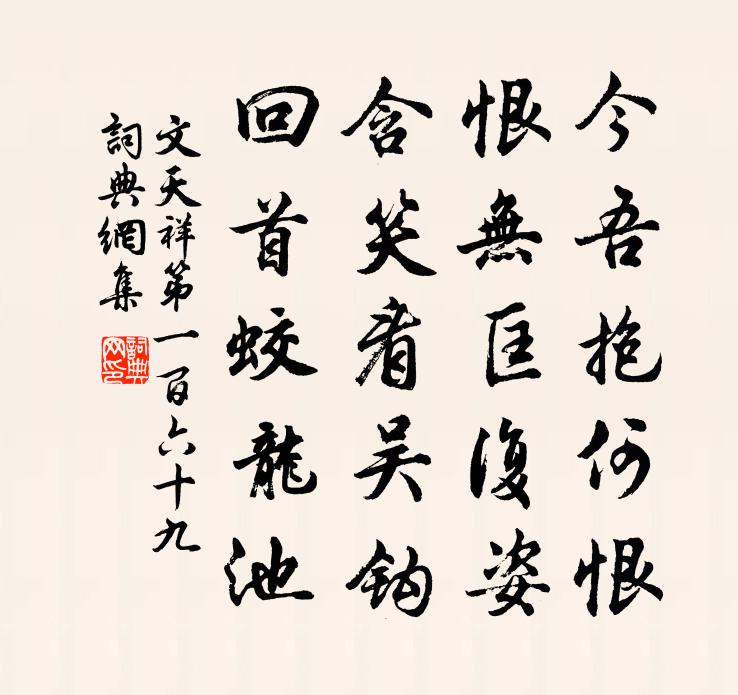 今吾抱何恨
恨無匡復姿
含笑看吴鈎
回首蛟龍池
文天祥第一百六十九
詞典網集
詞典網印